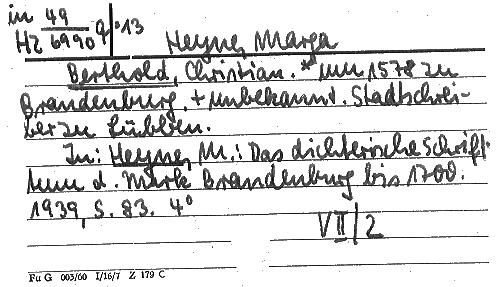 in 49
Hz 6990 q :13
Heyne, Marga
Berthold, Christian. * um 1578 zu
Brandenburg. + unbekannt. Stadtschrei-
ber zu Lübben.
In: Heyne, M.: Das dichterische Schrift-
tum d. Mark Brandenburg bis 1700.
1939, S. 83. 4°
VII/2
Fu G 003/60 I/16/7 Z 179 C